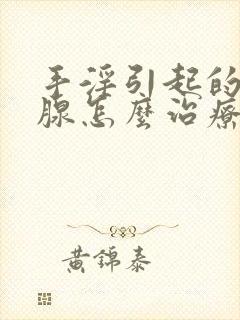 手淫引起的
腺怎麼治療
黃錦泰